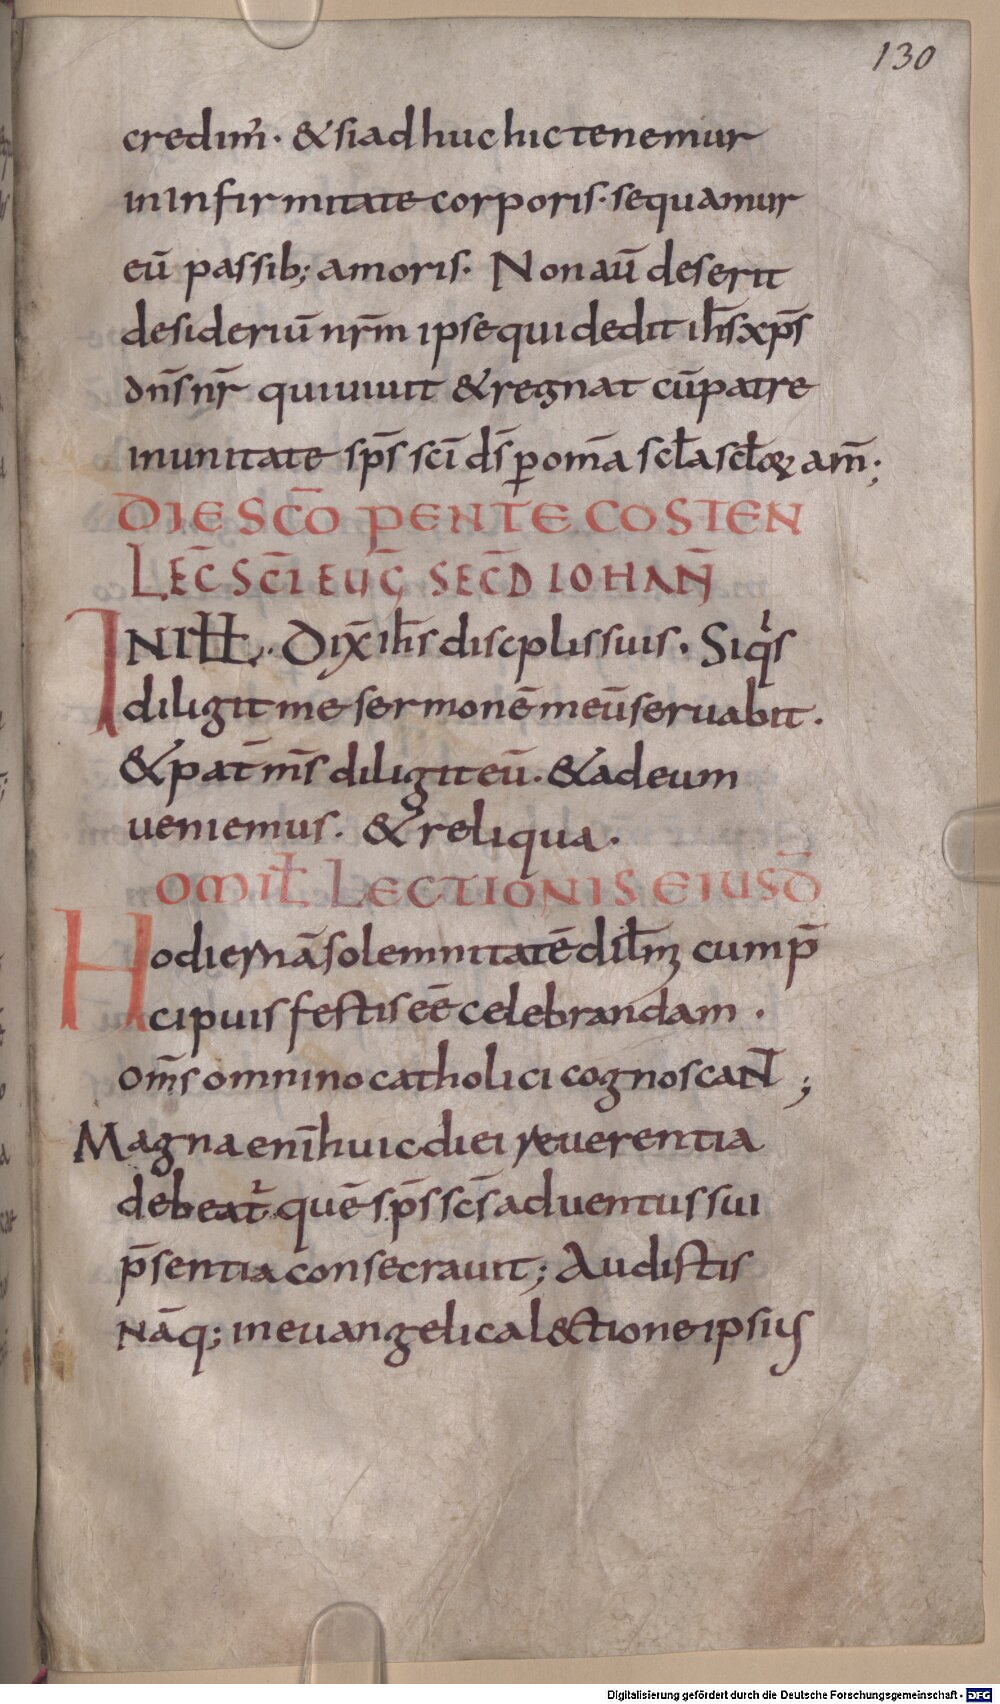 130
credim̅· & si adhuc hic tenemur
in infirmitate corporis· sequamur
eū passib; amoris· Non aū deserit
desideriū nr̄m ipse qui dedit ih̄s xp̄s
dn̄s nr̄ qui uiuit & regnat cū patre
in unitate sp̄s sc̄i ds̄ ꝑ om̄a scl̄a scl̄oꝝ am̄;
DIE SC̄O PENTECOSTEN
LEC̄ SC̄I EUḠ SECD̄ IOHAN̄
IN ILL̄· Dix̄ ih̄s discplis suis· Siqͥs
diligit me sermonē meū seruabit·
& pat̄ m̄s diligit eū· & ad eum
ueniemus· & reliqua·
OMIL̄ LECTIONIS EIUSD̄
Hodiernā solemnitatē dil̄mi cum p̄
cipuis festis eē celebrandam·
om̄s omnino catholici cognoscant̄;
Magna enī huic diei reuerentia
debeat̉ quē sp̄s sc̄s aduentus sui
p̄sentia consecrauit; Audistis
nāq; in euangelica l&ctione ipsius
Digitalisierung gefördert durch die Deutsche Forschungsgemeinschaft - DFG